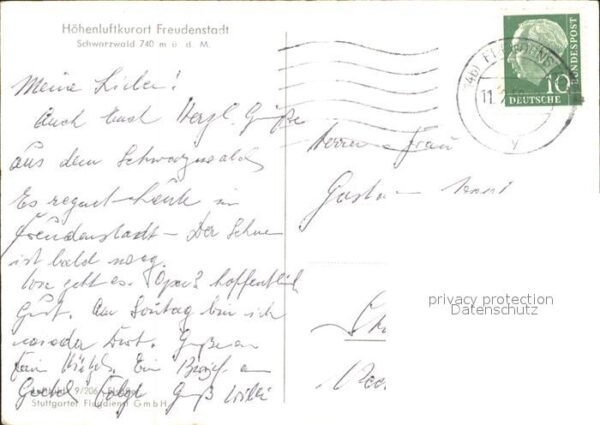 Höhenluftkurort Freudenstadt
Schwarzwald 740 m ü. d. M.
Meine Lieben!
Auch Euch Herzl. Grüße
aus dem Schwarzwald.
Es regnet heute in
Freudenstadt – Der Schnee
ist bald weg.
Wie geht es Opa? hoffentlich
Gut. Am Sonntag bin ich
wieder dort. Grüße an
Ein Brief an
folgt Gruß Willi
Stuttgarter Flugdienst GmbH
10
DEUTSCHE
BUNDESPOST
11.
Herrn u. Frau
Gustav
privacy protection
Datenschutz